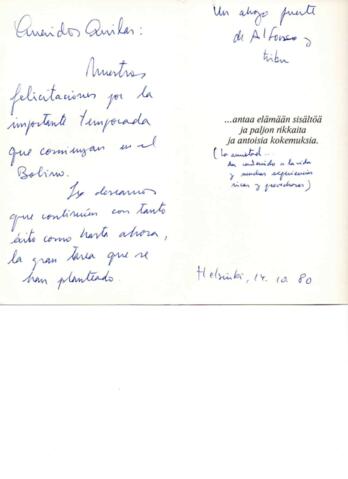 Queridos Quilas:
Nuestras
felicitaciones por la
importante temporada
que comienzan en el
Bolivar.
Les deseamos
que continúen con tanto
éxito como hasta ahora,
la gran tarea que se
han planteado.
Un abrazo fuerte
de Alfonso y
...antaa elämään sisältöä
ja paljon rikkaita
ja antoisia kokemuksia.
(La amistad...
da contenido a la vida
y muchas experiencias
ricas y
Helsinki, 14. 10. 80